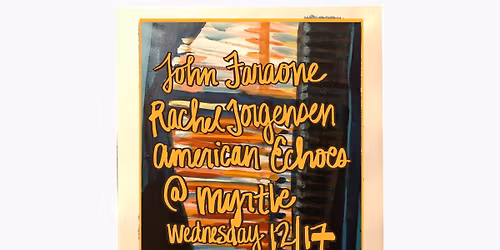 John Faraone
Rachel Jorgensen
american Echoes
@ myrtle
wednesday 12/17